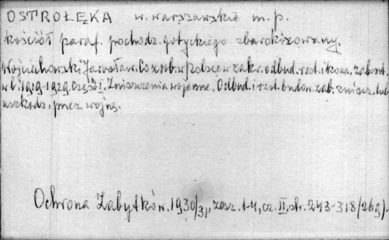 OSTROŁĘKA w. warszawskie m.p.
kościół paraf. pochodz. gotyckiego zbarokizowany.
Wojciechowski Jarosław. Co zrob. w Polsce w zakr. odbud. rest. i kons. zabyt.
w l. 1919-1929. Część I. Zniszczenia wojenne. Odbud. i rest. budow. zab. zniszcz. lub
uszkodz. przez wojnę.
Ochrona Zabytków. 1930/31, zesz. 1-4, cz. II, str. 243-318/269/.